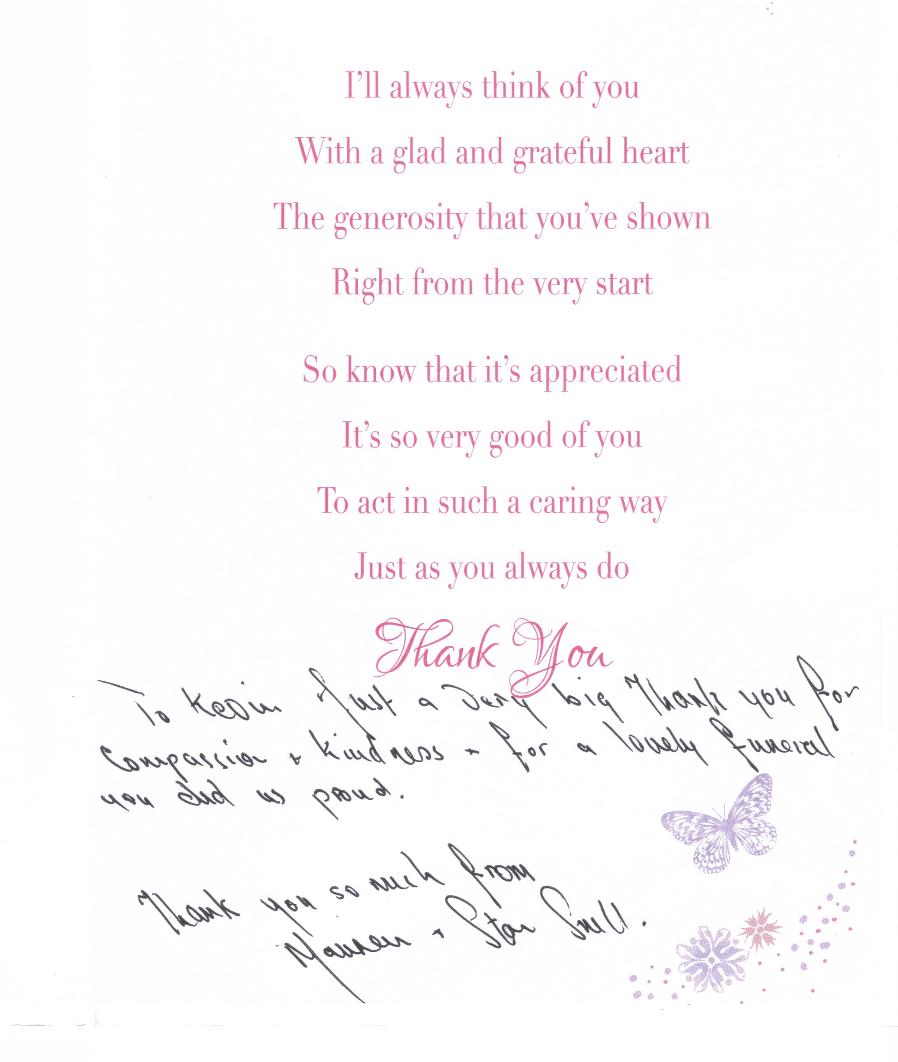 I'll always think of you
With a glad and grateful heart
The generosity that you've shown
Right from the very start
So know that it's appreciated
It's so very good of you
To act in such a caring way
Just as you always do
Thank You
To Kevin Just a very big Thank you for
Compassion + kindness + for a lovely funeral
you did us proud.
Thank you so much from
Maureen + Stan Snell.